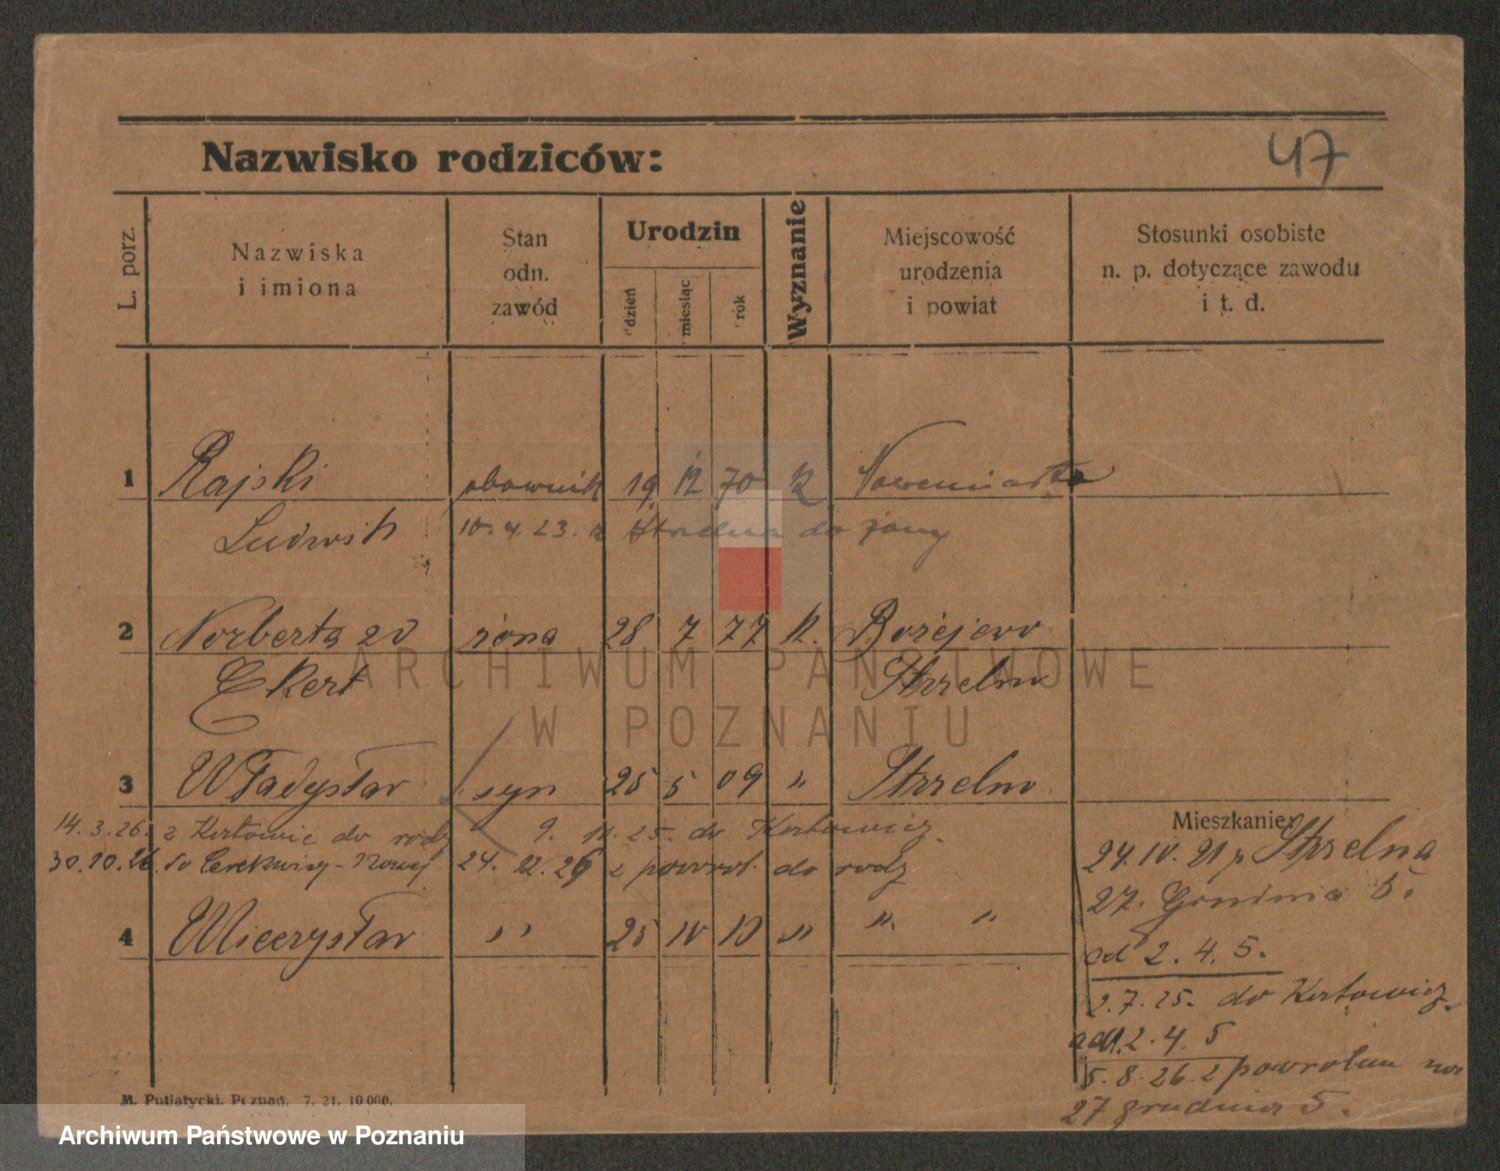 47
Nazwisko rodziców:
L. porz.
Nazwiska
i imiona
Stan
odn.
zawód
Urodzin
dzień
miesiąc
rok
Wyznanie
Miejscowość
urodzenia
i powiat
Stosunki osobiste
n. p. dotyczące zawodu
i t. d.
1 Rajski 19 12 70 k
Ludwik 10. 4. 23. z Strzelna do żony
2 Norberta zd żona 28 7 77 k. Bożejewo
Ekert Strzelno
3 Władysław syn 25 5 09 " Strzelno
14. 3. 26. z do rodz 9. 11. 25. do
30. 10. 26. do 24. 12. 26 z powrot. do rodz
4 Mieczysław " 25 10 10 " " "
Mieszkanie:
24. IV. 21 p Strzelna
27. Grudnia 5.
ad 2. 4. 5.
2. 7. 25. do
ad 1. 2. 4. 5
5. 8. 26. z powrotem na
27 grudnia 5.
M. Putiatycki. Poznań. 7. 21. 10 000.
ARCHIWUM PAŃSTWOWE
W POZNANIU
Archiwum Państwowe w Poznaniu